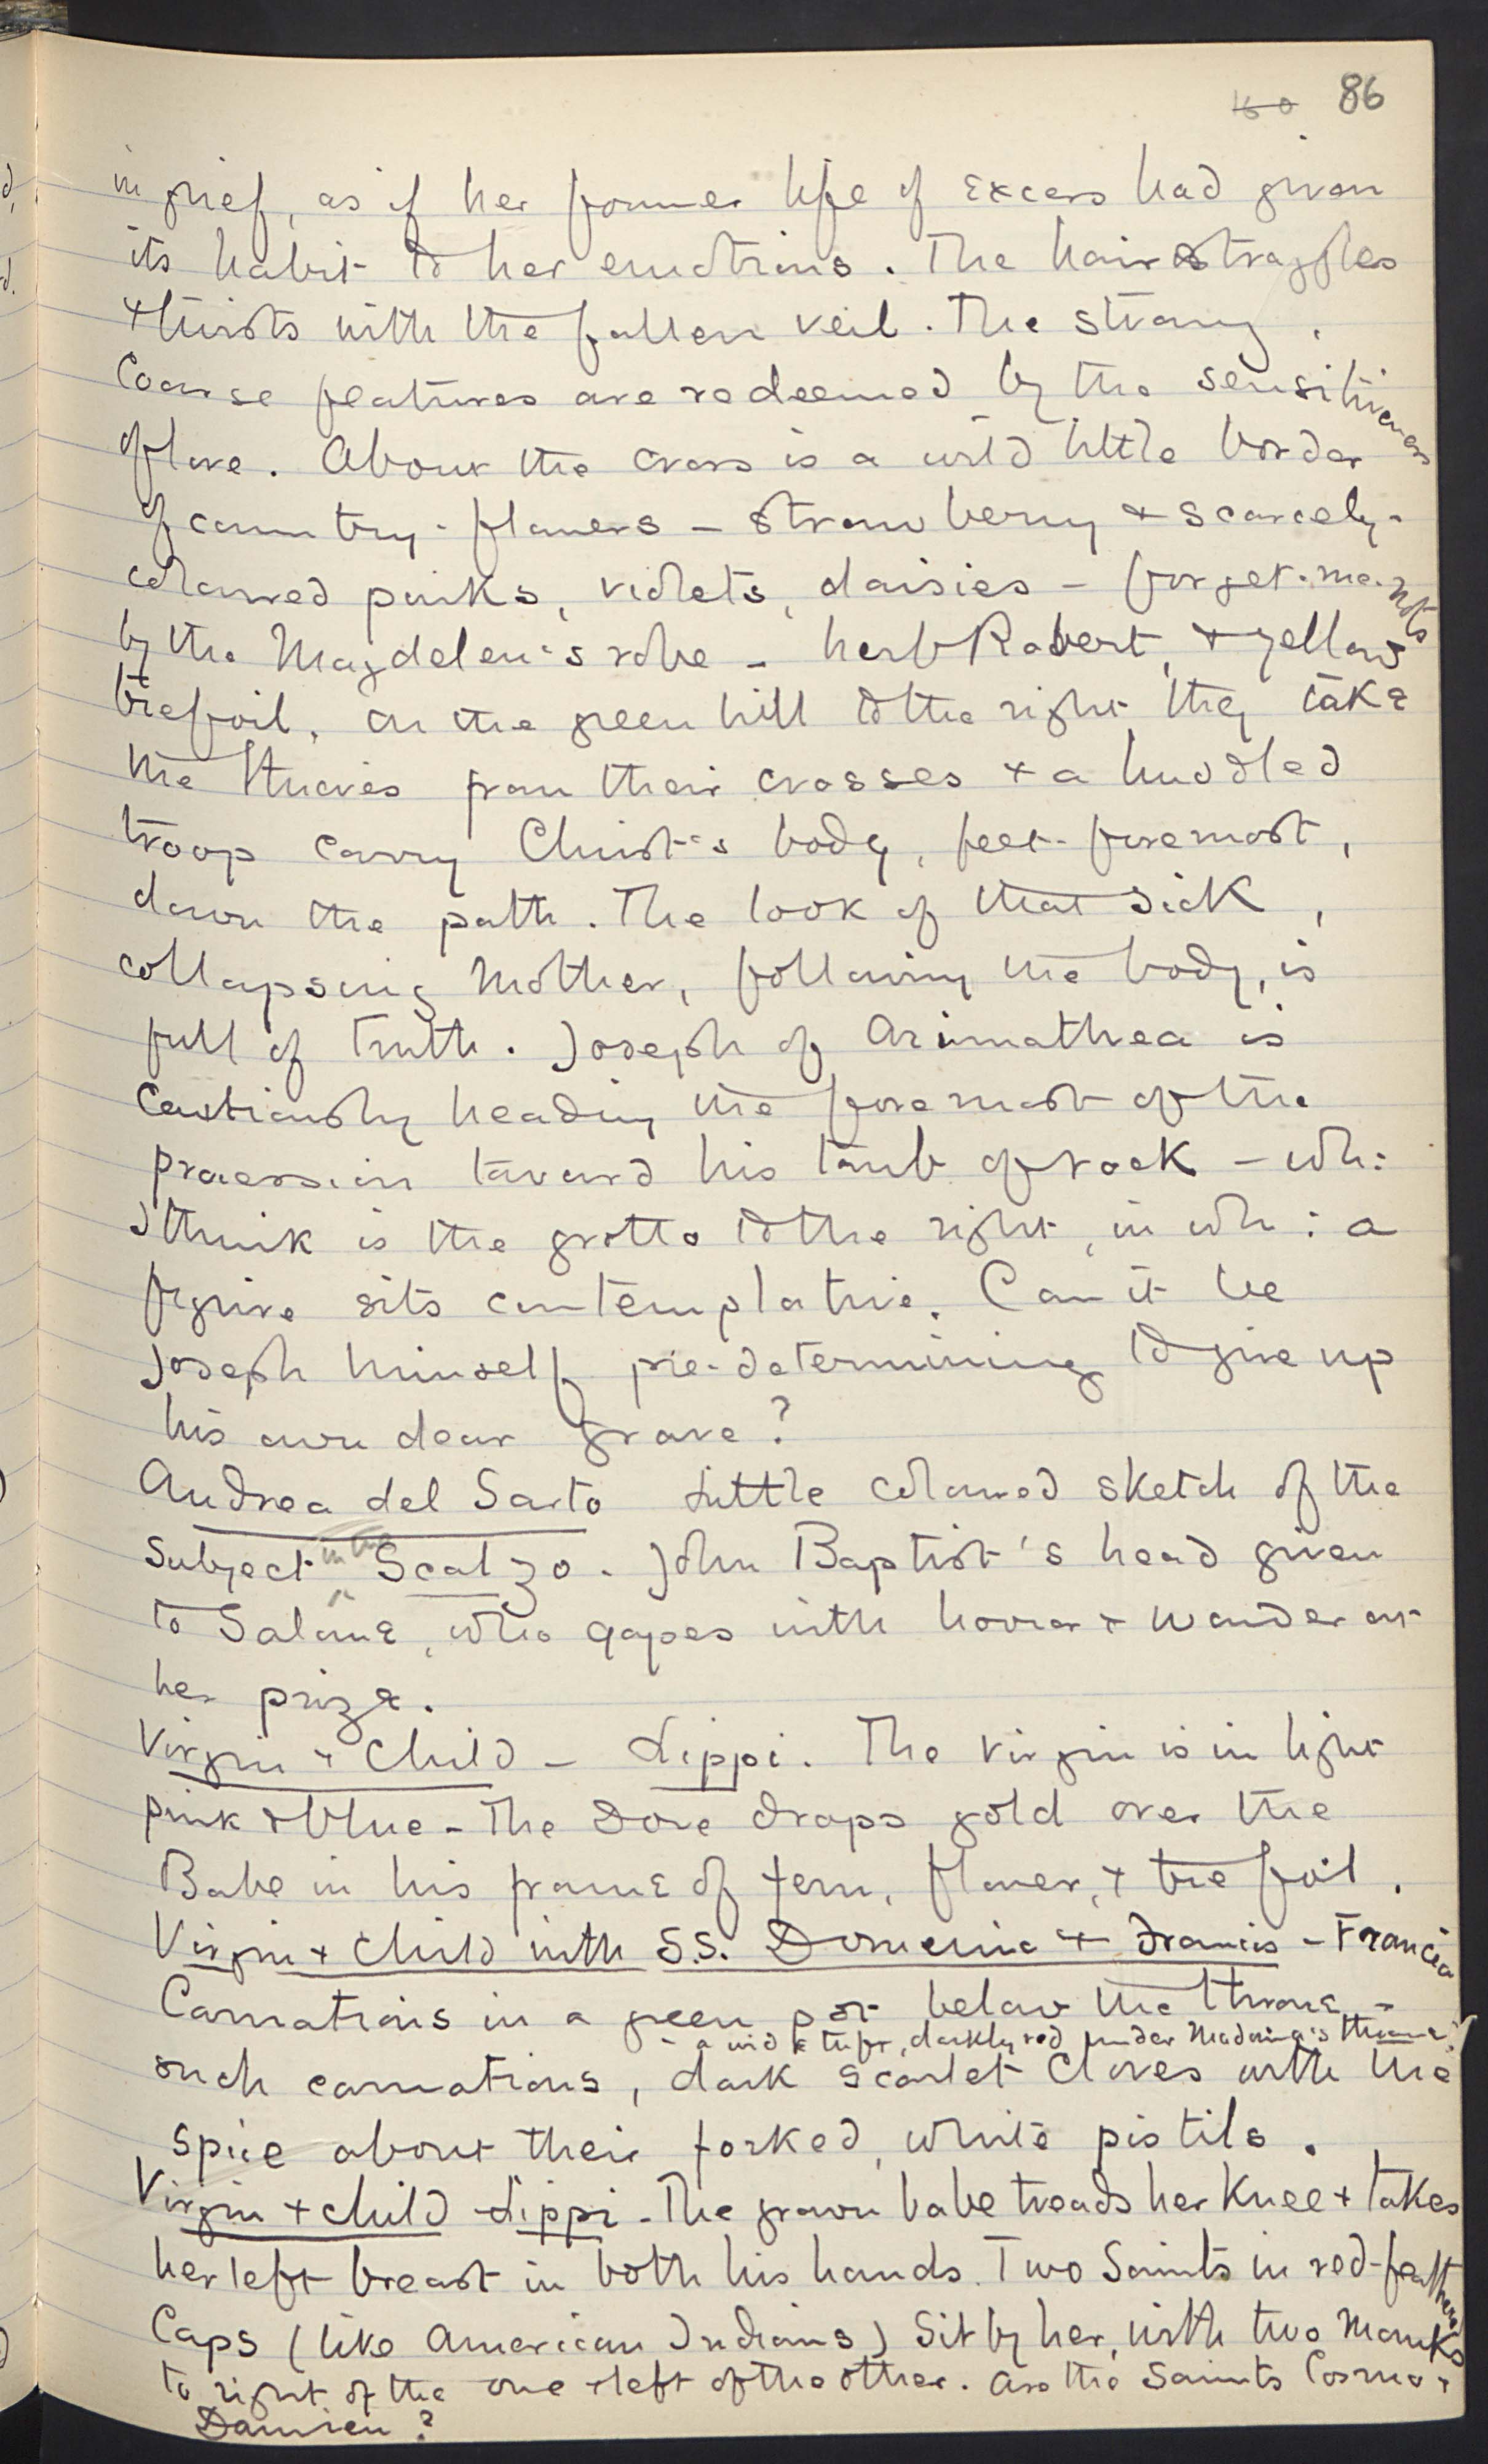 86
in grief, as if her former life of excess had given
its habit to her emotions. The hair straggles
& twists with the fallen veil. The strong,
coarse features are redeemed by the sensitiveness
of love. About the cross is a wild little border
of country-flowers – strawberry & scarcely-
coloured pinks, violets, daisies – forget-me-nots
by the Magdelen's robe – herb Robert, & yellow
trefoil, on the green hill to the right they take
the thieves from their crosses & a huddled
troop carry Christ's body, feet-foremost,
down the path. The look of that sick,
collapsing Mother, following the body, is
full of truth. Joseph of Arimathea is
cautiously heading the foremost of the
procession toward his tomb of rock – wh:
I think is the grotto to the right, in wh: a
figure sits contemplative. Can it be
Joseph himself pre-determining to give up
his own dear grave?
Andrea del Sarto Little coloured sketch of the
subject in the Scalzo. John Baptist's head given
to Salome, who gapes with horror & wonder at
her prize.
Virgin & Child – Lippi. The Virgin is in light
pink & blue – The Dove drops gold over the
Babe in his frame of fern, flower, & trefoil.
Virgin & Child with S.S. Domenic & Francis – Francia
Carnations in a green pot below the throne –
– a wide tuft, darkly red under Madonna's throne;
such carnations, dark scarlet cloves with the
spice about their forked, white pistils.
Virgin & Child – Lippi – The grown babe treads her knee & takes
her left breast in both his hands. Two Saints in red-feathered
Caps (like American Indians) sit by her, with two Monks
to right of the one & left of the other. Are the Saints Cosmo &
Damien?